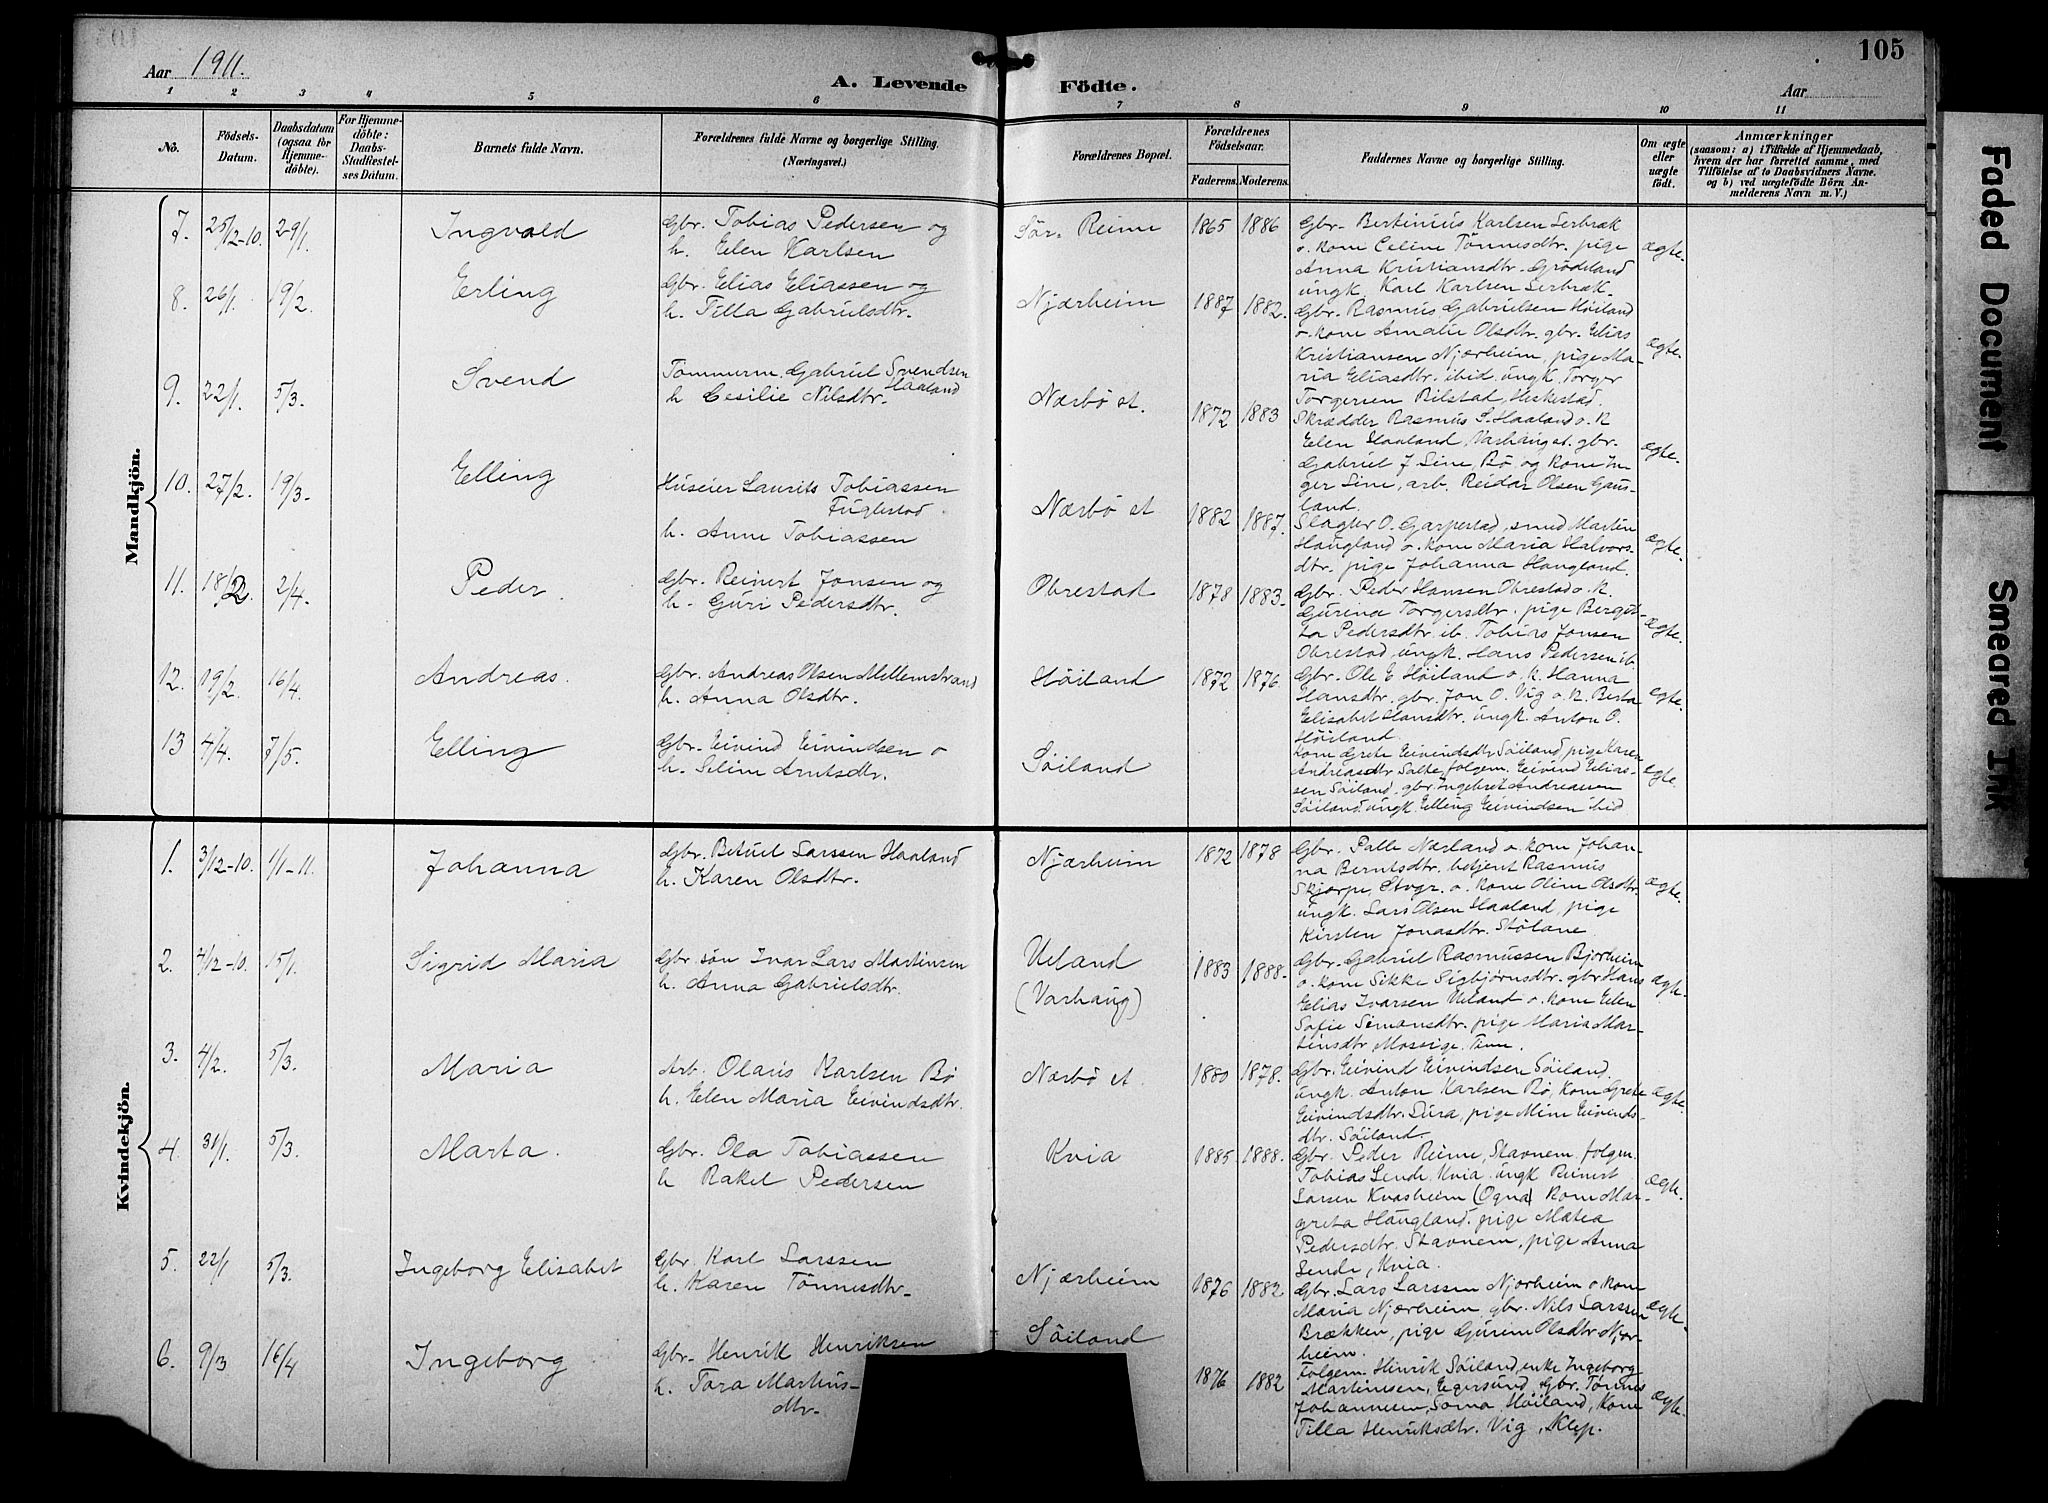 105
Aar 1911.
A. Levende Födte.
Aar
1 2 3 4 5 6 7 8 9 10 11
No.
Födsels-Datum.
Daabsdatum (ogsaa for Hjemmedöbte).
For Hjemmedöbte: Daabs-Stadfæstelses Datum.
Barnets fulde Navn.
Forældrenes fulde Navne og borgerlige Stilling. (Næringsvei.)
Forældrenes Bopæl.
Forældrenes Födselsaar.
Faderens. Moderens.
Faddernes Navne og borgerlige Stilling.
Om ægte eller uægte födt.
Anmærkninger
(saasom: a) i Tilfælde af Hjemmedaab, hvem der har forrettet samme, med Tilföielse af to Daabsvidners Navne. og b) ved uægtefödte Börn Anmelderens Navn m. V.)
Mandkjön.
7. 25/12-10. 29/1. Ingvald
Gbr. Tobias Pedersen og
h. Elen Karlsen
Sör. Reime 1865 1886
Gbr. Bertinius Karlsen Serbræk
o. kone Celine Tönnesdtr. pige
Anna Kristiansdtr. Grödeland
ungk. Karl Karlsen Serbræk.
ægte.
8. 26/1. 19/2. Erling
Gbr. Elias Eliassen og
h. Tilla Gabrielsdtr.
Njærheim 1887 1882.
Gbr. Rasmus Gabrielsen Höiland
o. kone Amalie Olsdtr. gbr. Elias
Kristiansen Njærheim, pige Ma-
ria Eliasdtr. ibid. ungk. Torger
Torgersen Bilstad, Heskestad.
ægte.
9. 22/1. 5/3. Svend
Tömmerm. Gabriel Svendsen
Haaland
h Cesilie Nilsdtr.
Nærbö st. 1872 1883
Skrædder Rasmus S. Haaland o. k
Elen Haaland, Varhaug st. gbr.
Gabriel J Line, Bö og kone In-
ger Line, arb. Reidar Olsen Gaus-
land.
ægte.
10. 27/2. 19/3. Elling
Huseier Laurits Tobiassen
Fuglestad.
h. Anne Tobiassen
Nærbö st 1882 1887.
Slagter O. Garpestad, smed Martin
Haugland o. kone Maria Halvors-
dtr. pige Johanna Haugland.
ægte.
11. 18/2. 2/4. Peder.
Gbr. Reinert Jonsen og
h. Guri Pedersdtr.
Obrestad 1878 1883.
Gbr. Peder Hansen Obrestad o. k.
Gurina Torgersdtr. pige Bergit-
ta Pedersdtr. ib. Tobias Jonsen
Obrestad ungk. Hans Pedersen ib.
ægte.
12. 19/2. 16/4. Andreas.
Gbr. Andreas Olsen Mellemstrand
h. Anna Olsdtr.
Höiland 1872 1876.
Gbr. Ole E Höiland o. k. Hanna
Hansdtr. gbr. Jon O. Vig o. k. Berta
Elisabet Hansdtr. ungk. Anton O.
Höiland.
ægte.
13 4/4. 7/5. Elling
Gbr. Eivind Eivindsen o
h. Seline Arntsdtr.
Söiland
Kone Grete Eivindsdtr Söiland, pige Karen
Andreasdtr Salte, folgem. Eivind Elias-
sen Söiland. gbr. Ingebret Andreassen
Söiland. ungk. Elling Eivindsen ibid
ægte.
Kvindekjön.
1. 3/12-10. 1/1-11. Johanna
Gbr. Betuel Larssen Haaland
h. Karen Olsdtr.
Njærheim 1872 1878
Gbr. Palle Nærland o. kone Johan-
na Berntsdtr. betjent Rasmus
Skjorpe, Stvgr. o. kone Oline Olsdtr.
ungk. Lars Olsen Haaland, pige
Kirsten Jonasdtr. Stölane.
ægte.
2. 4/12-10. 15/1. Sigrid Maria
Gbr. sön Ivar Lars Martinsen
h. Anna Gabrielsdtr.
Ueland
(Varhaug) 1883 1888.
Gbr. Gabriel Rasmussen Bjorheim
o. kone Sikke Sigbjörnsdtr. gbr Hans
Elias Ivarsen Ueland o. kone Elen
Sofie Simonsdtr. pige Maria Mar-
tinsdtr Mossige. Time.
ægte.
3. 4/2. 5/3. Maria
Arb. Olaus Karlsen Bö
h. Elen Maria Eivindsdtr.
Nærbö st. 1880 1878.
Gbr. Eivind Eivindsen Söiland.
ungk. Anton Karlsen Bö, kone Grete
Eivindsdtr. Lura, pige Mine Eivinds-
dtr. Söiland.
ægte.
4. 31/1. 5/3. Marta.
Gbr. Ola Tobiassen
h Rakel Pedersen
Kvia 1885 1888.
Gbr. Peder Reime, Stavnem folgem.
Tobias Lende, Kvia. ungk Reinert
Larsen Kvasheim (Ogna) kone Mar-
greta Haugland. pige Matea
Pedersdtr. Stavnem, pige Anna
Lende, Kvia.
ægte.
5. 22/1 5/3. Ingeborg Elisabet
Gbr Karl Larssen
h. Karen Tönnesdtr.
Njærheim 1876 1882
Gbr. Lars Larssen Njærheim o. kone
Maria Njærheim, gbr. Nils Larssen
Brækken, pige Gurine Olsdtr. Njær-
heim.
ægte.
6. 9/3 16/4 Ingeborg
Gbr. Henrik Henriksen
h. Tora Martins-
dtr.
Söiland 1876 1882
Folgem. Henrik Söiland, enke Ingeborg
Martinsen, Egersund, Gbr. Tönnes
Johannesen, Soma, Höiland, Kone
Tilla Henriksdtr. Vig, Klep.
ægte.
Faded Document
Smeared Ink